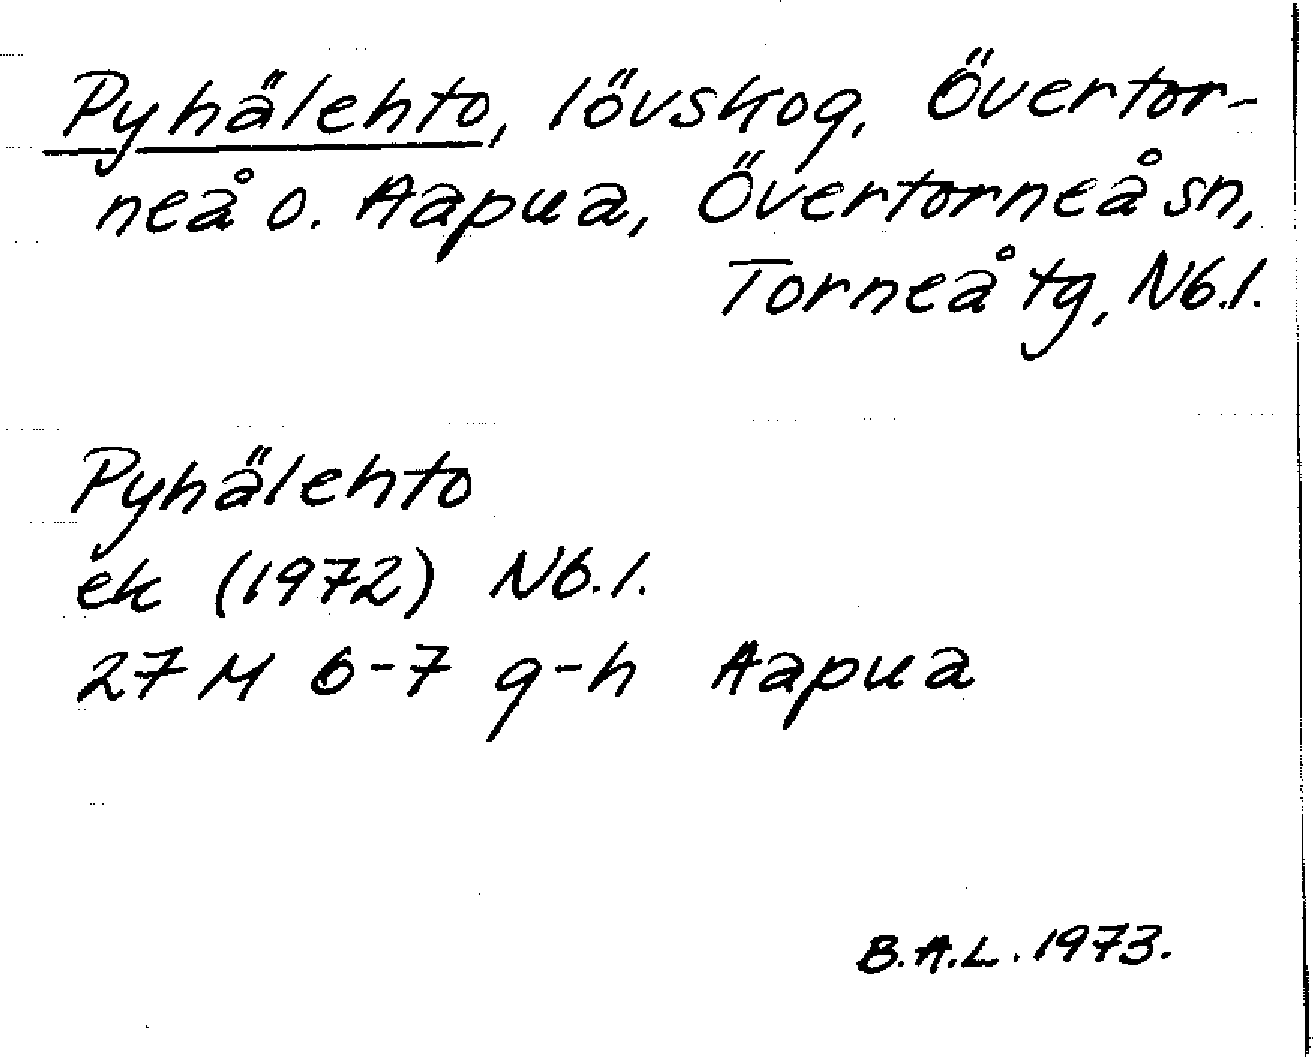 Pyhälehto, lövskog, Övertor-
neå o. Aapua, Övertorneå sn,
Torneå tg, Nb.l.
Pyhälehto
ek (1972) Nb.l.
27 M 6-7 g-h Aapua
B.A.L. 1973.